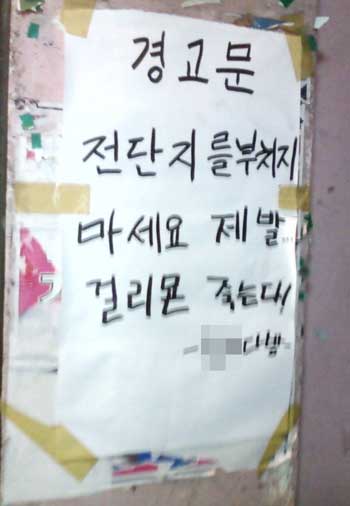 경고문
전단지를부처지
마세요 제발..
걸리몬 죽는다!